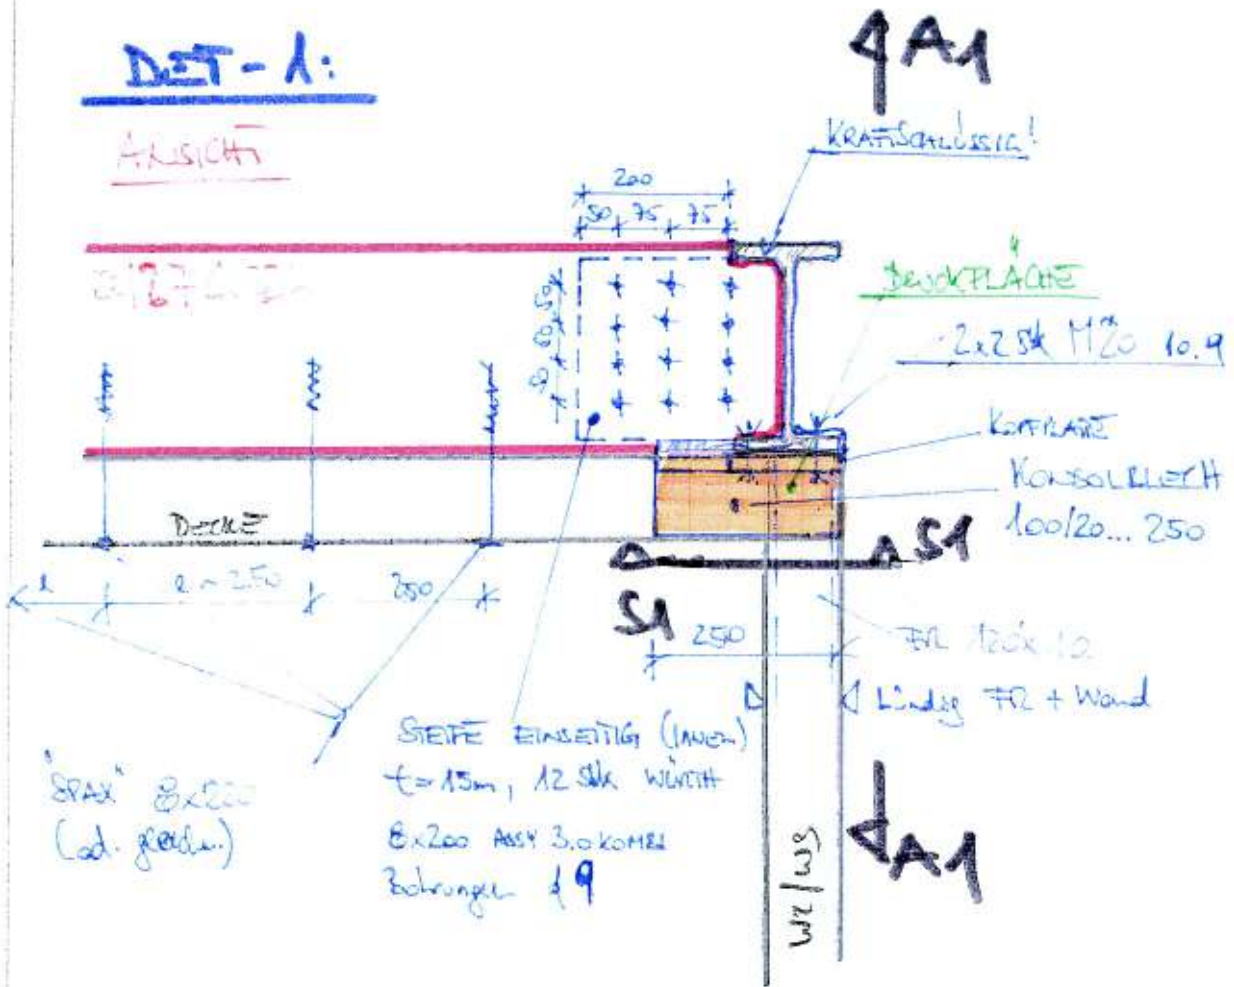 DET-1:
A1
ANSICHT
KRAFTSCHLÜSSIG!
200
50 75 75
DRUCKFLÄCHE
2x2 Stk M20 10.9
50 50 50
KOPFPLATTE
KONSOLBLECH
100/20... 250
DECKE
S1
S1
250
250
FR 120x10
bündig FR + Wand
STEIFE EINSEITIG (INNEN)
t=15mm, 12 Stk WÜRTH
8x200 ASSY 3.0 KOMBI
Bohrungen ϕ9
"SPAX" 8x220
(od. gleichw.)
A1